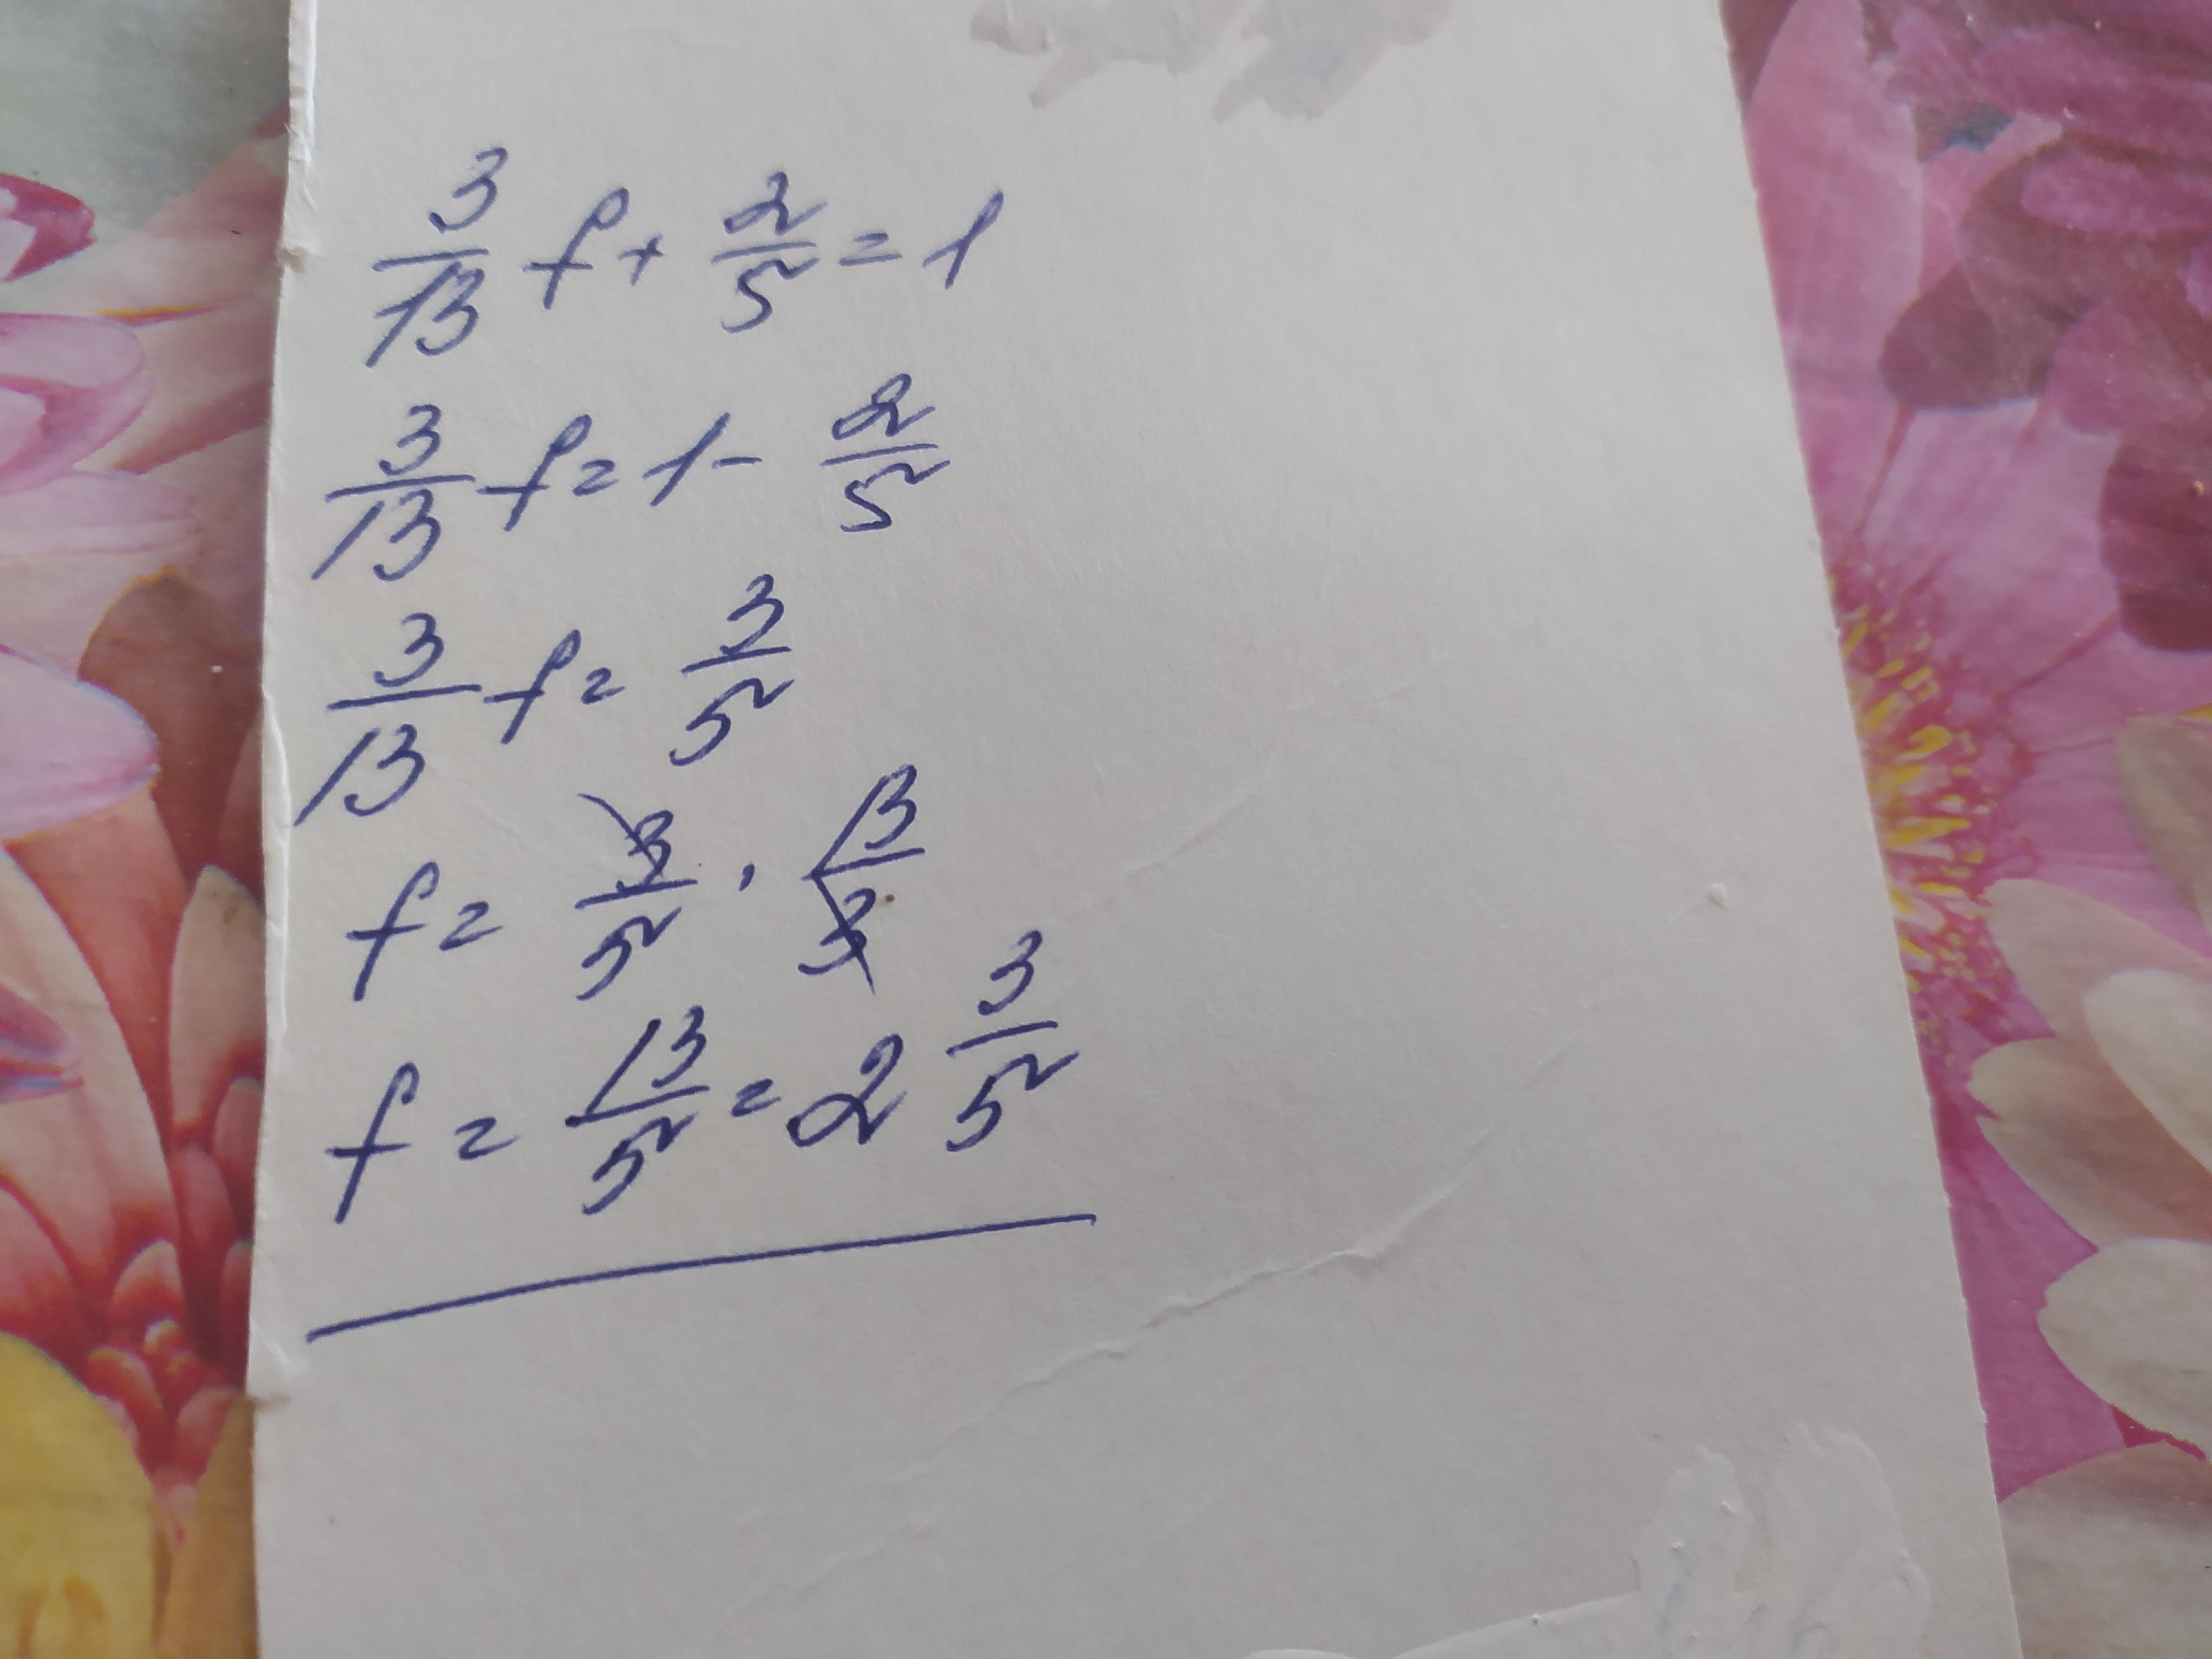 3/13 f + 2/5 = 1
3/13 f = 1 - 2/5
3/13 f = 3/5
f = 3/5 · 13/3
f = 13/5 = 2 3/5